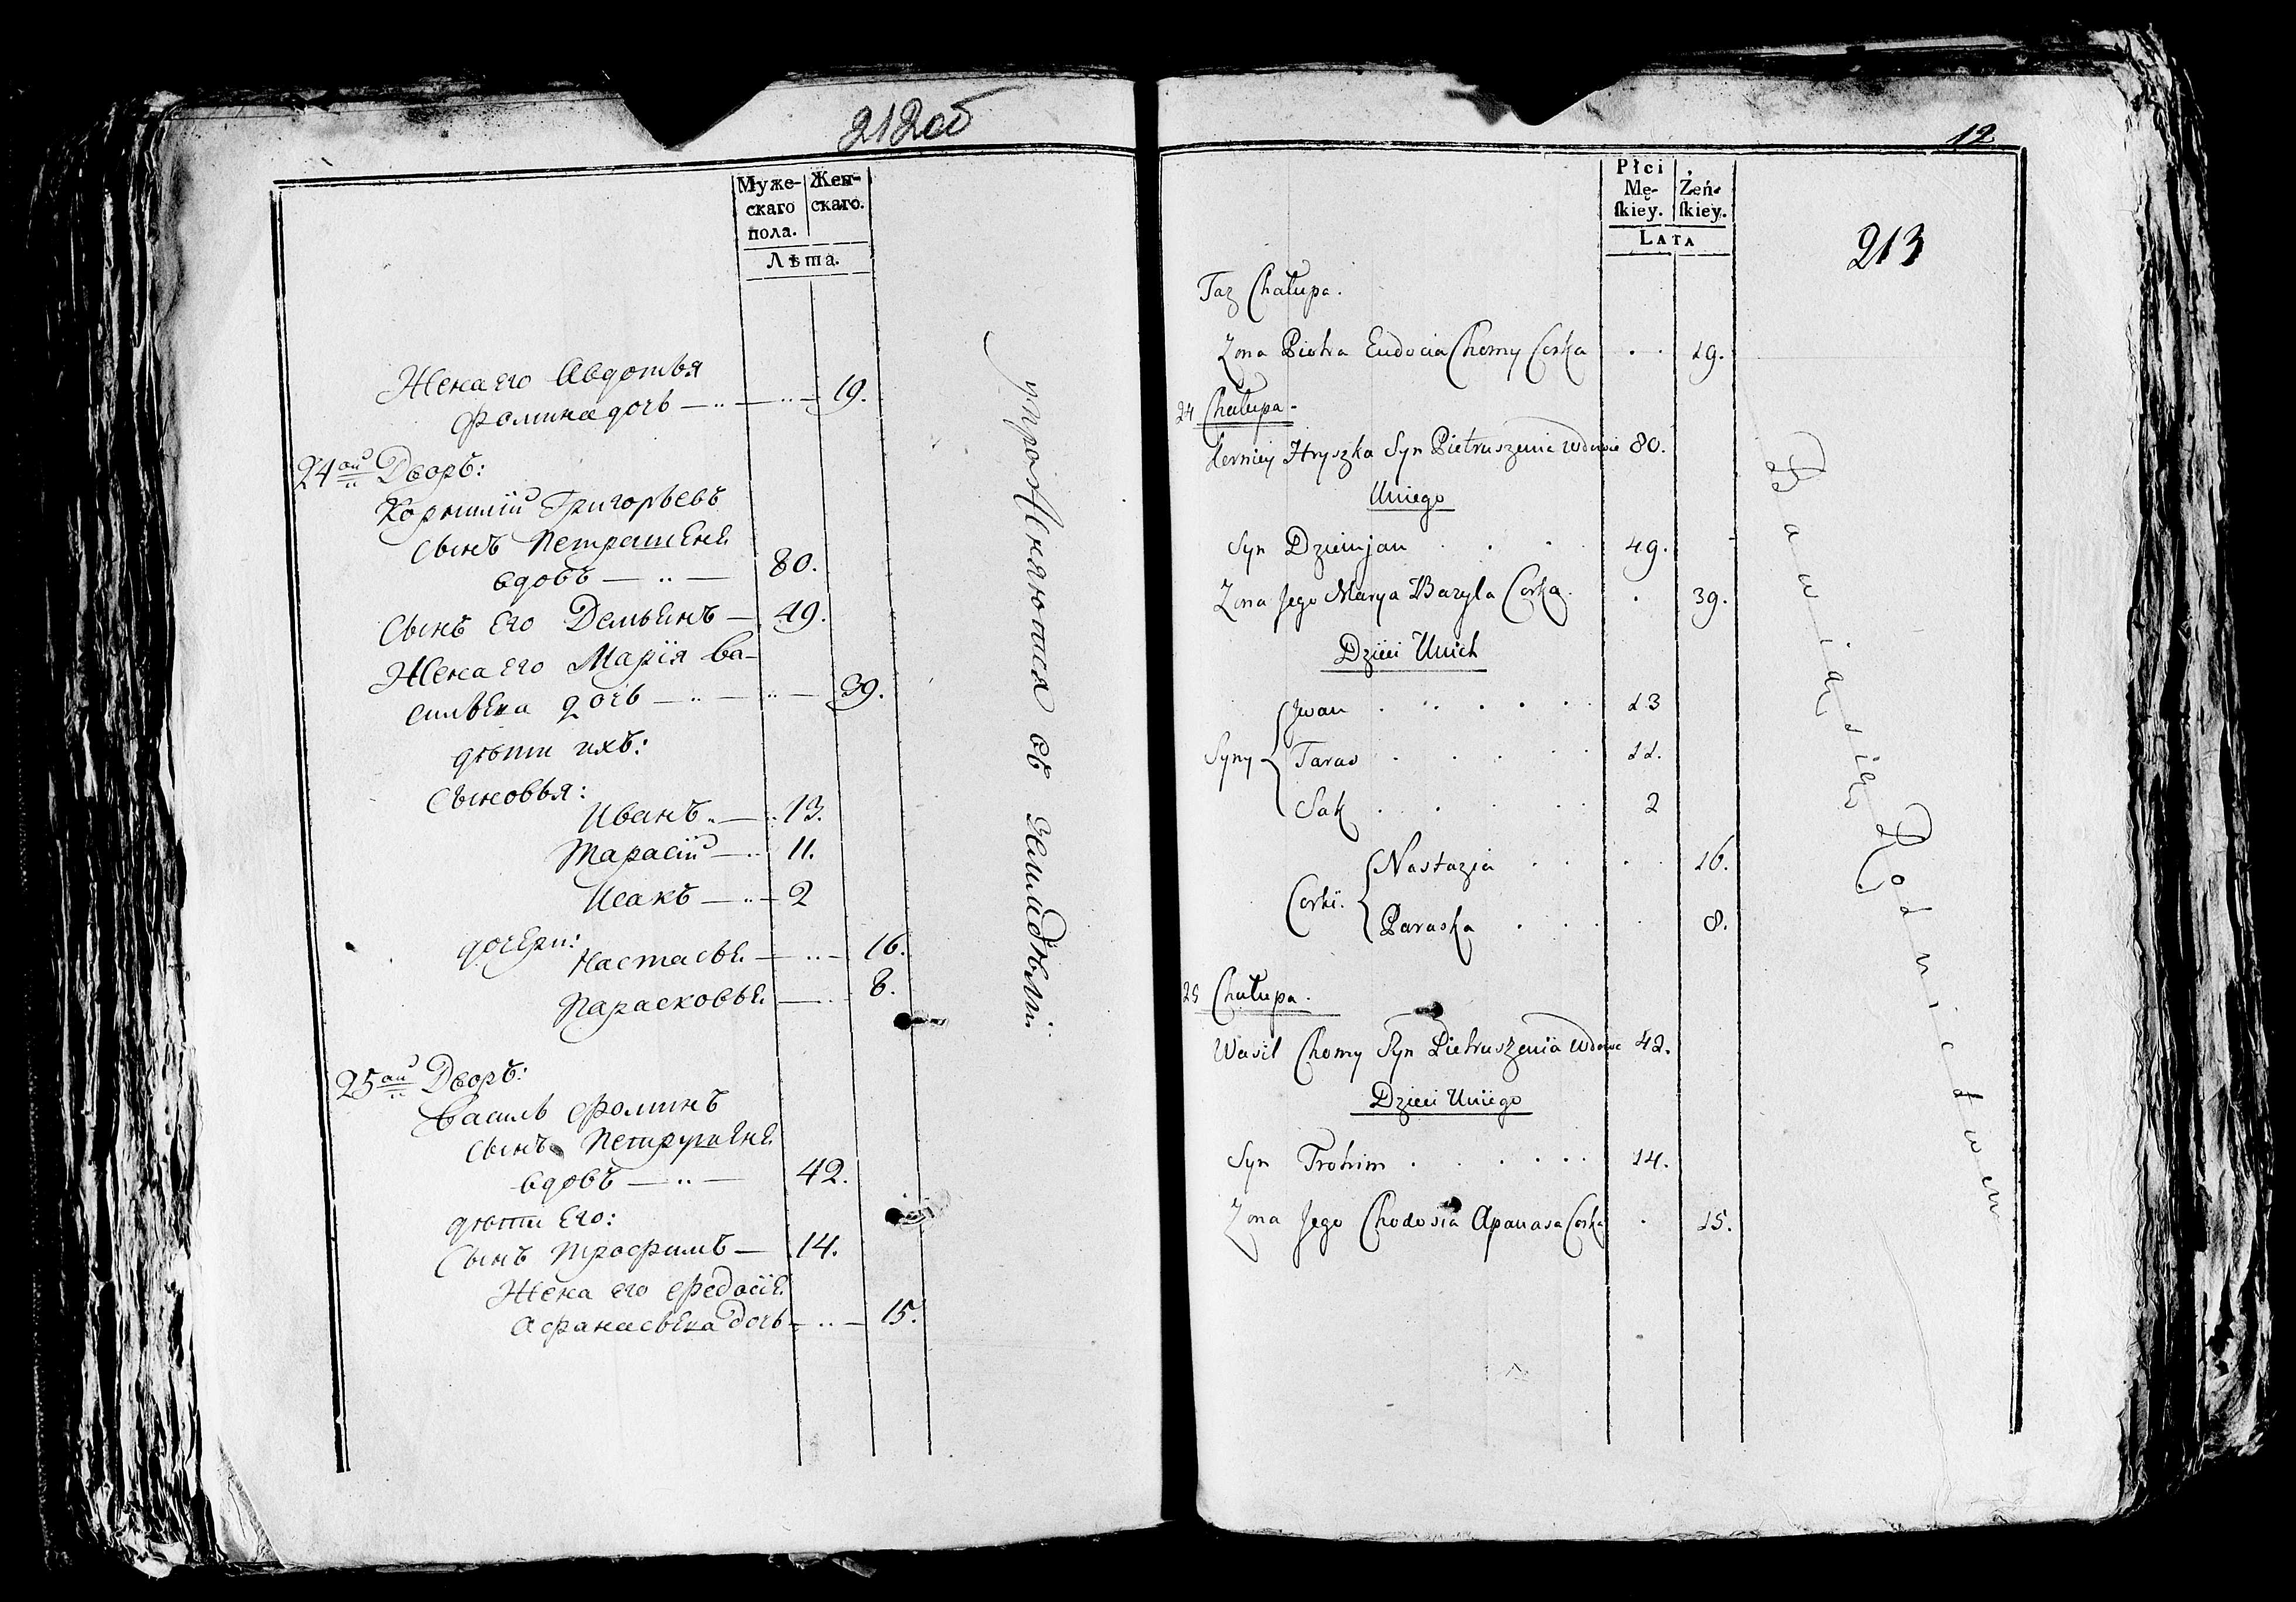 212об
Муже-
скаго
пола.
Жен-
скаго.
Лѣта.
Жена его Авдотья
Фомина дочь — .. — .. — 19.
24ый Дворъ:
Корнилiй Григорьевъ
сынъ Петрашеня
вдовъ — .. — 80.
Сынъ его Демьянъ — 49.
Жена его Марiя Ва-
сильева дочь — .. — .. — 39.
дѣти ихъ:
Сыновья:
Иванъ .. — .. 13.
Тарасiй — .. 11.
Исакъ — .. — 2
дочери:
Настасья — .. — 16.
Парасковья — .. 8.
25ый Дворъ:
Василь Фоминъ
сынъ Петрушеня
вдовъ — .. — 42.
дѣти его:
Сынъ Трофимъ — 14.
Жена его Федосiя
Афанасьева дочь — .. — 15.
упражняются въ земледѣлiи
12
Płci
Mę-
ſkiey.
Żeń-
ſkiey.
LATA
213
Taz Chałupa.
Zona Piotra Eudocia Chomy Corka . . 19.
24 Chałupa.
Kerniey Hryszka Syn Pietruszenia Wdowie 80.
Uniego
Syn Dziemjan . . . 49.
Zona Jego Marya Bazyla Corka . . 39.
Dzieci Unich
Syny
Jwan . .. . . . . 13
Taras . . . . . 11.
Sak . . . . . 2
Corki.
Nastazia . . . . 16.
Paraska . . . . 8.
25 Chałupa.
Wasil Chomy Syn Pietruszenia Wdowie 42.
Dzieci Uniego
Syn Trohim . . . . . 14.
Zona Jego Chodosia Apanasa Corka . 15.
Bawią się Rolnictwem